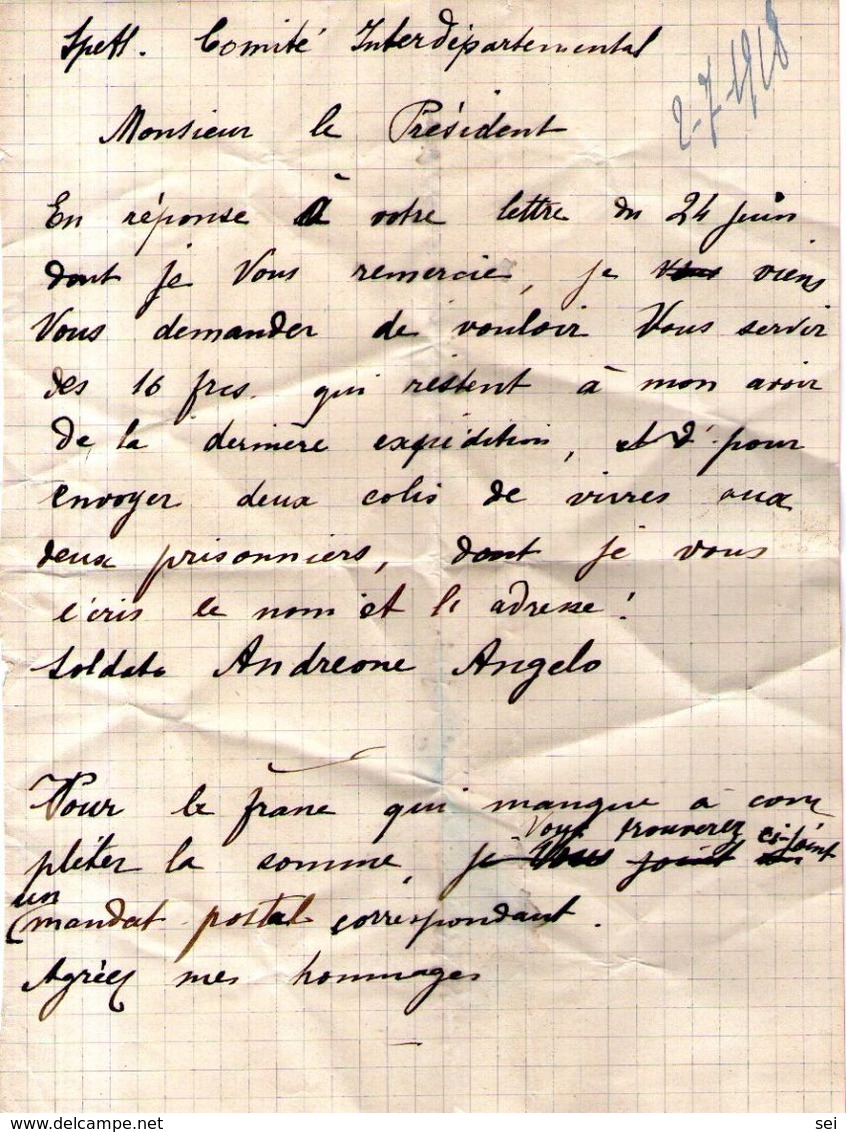 Spett. Comité Interdépartemental
2-7-1918
Monsieur le Président
En réponse à votre lettre du 24 juin
dont je Vous remercie, je vous viens
Vous demander de vouloir Vous servir
des 16 frcs. qui restent à mon avoir
de la dernière expédition, et d' pour
envoyer deux colis de vivres aux
deux prisonniers, dont je vous
écris le nom et le adresse!
Soldato Andreone Angelo
Pour le franc qui manque à com
Vous trouverez ci-joint
pléter la somme, je Vous joint un
un
mandat postal correspondant.
Agréez mes hommages
delcampe.net
sei